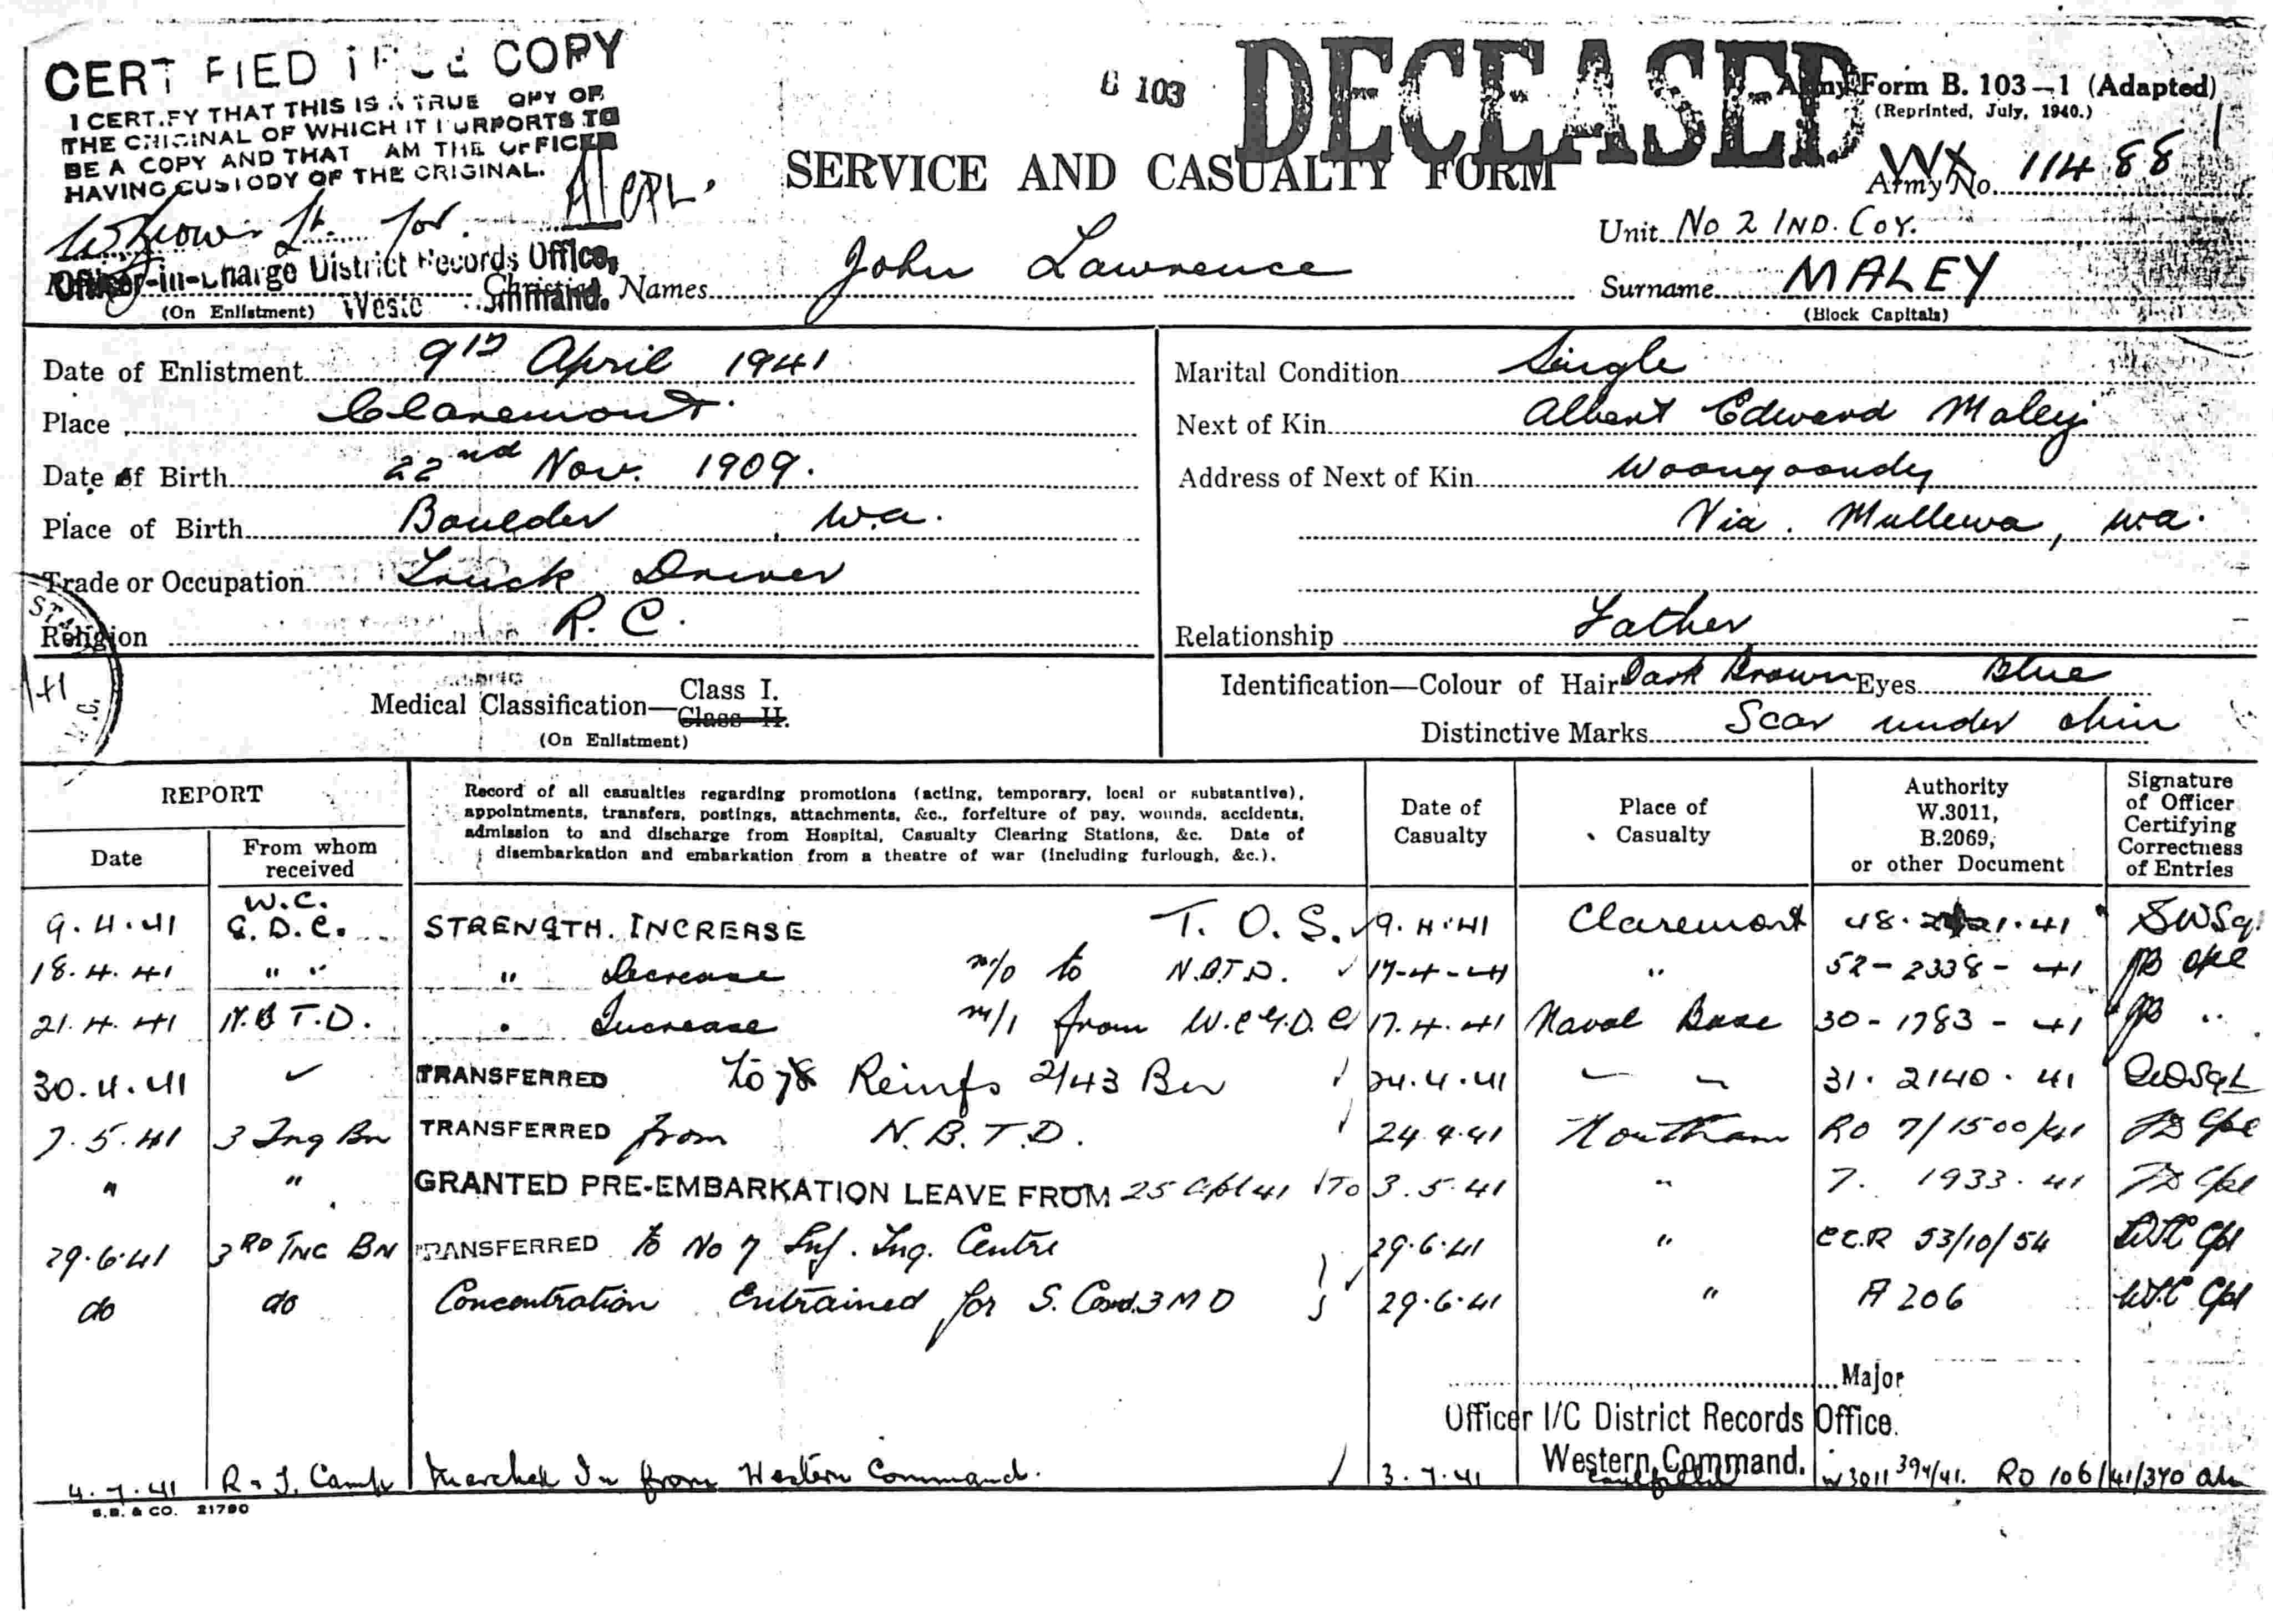 CERT FIED COPY
I CERT.FY THAT THIS IS A TRUE OPY OF
THE ORIGINAL OF WHICH IT PURPORTS TO
BE A COPY AND THAT AM THE OFFICER
HAVING CUSTODY OF THE ORIGINAL.
Lt. for
Officer-in-Charge District Records Office,
(On Enlistment)
B 103
DECEASED
Army Form B. 103—1 (Adapted)
(Reprinted, July, 1940.)
SERVICE AND CASUALTY FORM
Army No. WX 11488
Unit No 2 IND. COY.
Christian Names John Lawrence
Surname MALEY
(Block Capitals)
Date of Enlistment 9th April 1941
Place Claremont.
Date of Birth 22nd Nov. 1909.
Place of Birth Boulder W.A.
Trade or Occupation Truck Driver
Religion R. C.
Marital Condition Single
Next of Kin Albert Edward Maley
Address of Next of Kin Woongoondy
Via. Mullewa, W.A.
Relationship Father
Medical Classification— Class I.
Class II.
(On Enlistment)
Identification—Colour of Hair Dark Brown Eyes Blue
Distinctive Marks Scar under chin
REPORT
Date
From whom received
Record of all casualties regarding promotions (acting, temporary, local or substantive),
appointments, transfers, postings, attachments, &c., forfeiture of pay, wounds, accidents,
admission to and discharge from Hospital, Casualty Clearing Stations, &c. Date of
disembarkation and embarkation from a theatre of war (including furlough, &c.).
Date of Casualty
Place of Casualty
Authority W.3011, B.2069, or other Document
Signature of Officer Certifying Correctness of Entries
9.4.41 W.C. G.D.C. STRENGTH. INCREASE T. O. S. 9.4.41 Claremont
18.4.41 " " " Decrease m/o to N.B.T.D. 17-4-41 " 52-2338-41
21.4.41 N.B T.D. " Increase m/i from W.C G.D.C 17.4.41 Naval Base 30-1783-41
30.4.41 TRANSFERRED to Reinfs 2/43 Bn 24.4.41 31. 2140. 41
7.5.41 3 Tng Bn TRANSFERRED from N.B.T.D. 24.4.41 Northam RO 7/1500/41
" " GRANTED PRE-EMBARKATION LEAVE FROM 25 Apl 41 TO 3.5.41 " 7. 1933. 41
29.6.41 3RD TNG BN TRANSFERRED to No 7 Inf. Tng. Centre 29.6.41 " CC.R 53/10/54
do do Concentration Entrained for S. Comd. 3 MD 29.6.41 " A 206
Major
Officer I/C District Records Office.
Western Command.
4.7.41 R & T. Camp Marched In from Western Command. 3.7.41 Caulfield W3011 394/41. RO 106/41/370
S.B. & CO. 21790